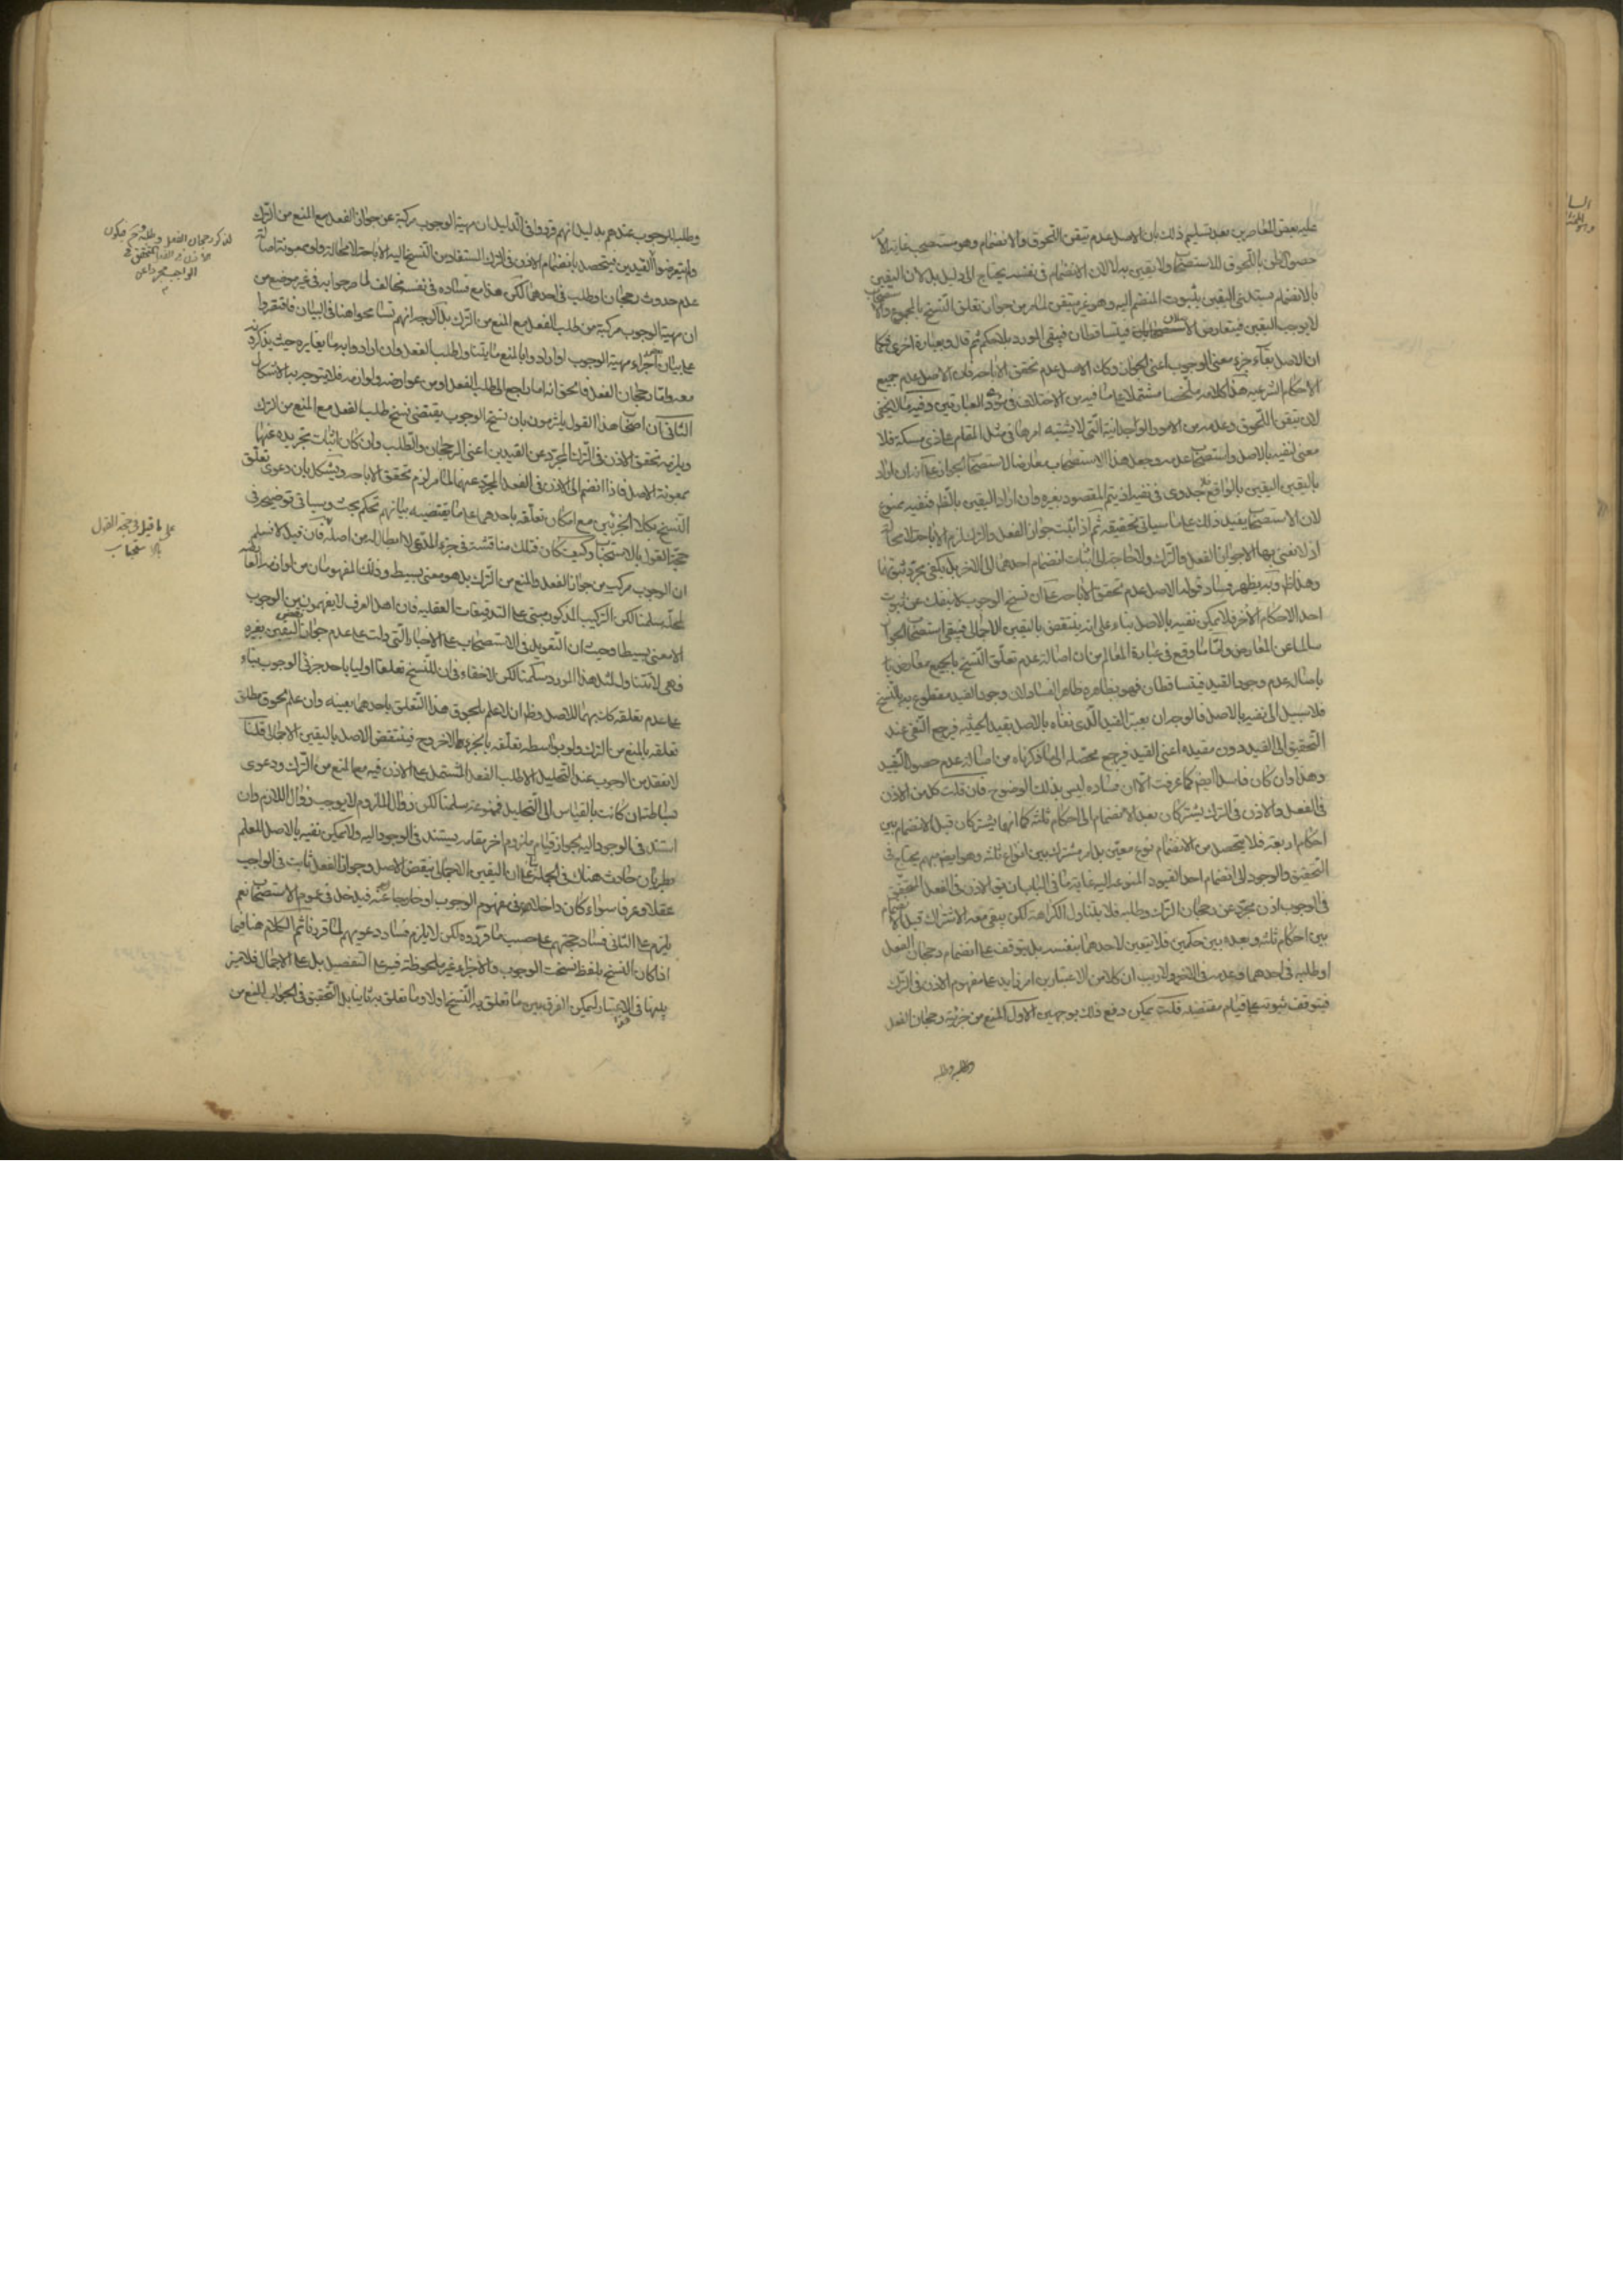 عليه بعض المعاصرين بعد تسليم ذلك بان الاصل عدم تيقن اللحوق والانضمام وهو مستصحب غاية الامر
حصول الظن باللحوق للاستصحاب ولا يقين به لا لان الانضمام في نفسه يحتاج الى دليل بل لان اليقين
بالانضمام يستدعي اليقين بثبوت المنضم اليه وهو غير متيقن لما مر من جواز تعلق النسخ بالمجموع والاستصحاب
لا يوجب اليقين فيتعارض الاستصحابان فيتساقطان فيبقى المورد بلا حكم ثم قال وبعبارة اخرى فكما
ان الاصل بقاء جزء معنى الوجوب اعني الجواز وكك الاصل عدم تحقق الاباحة فان الاصل عدم جميع
الاحكام الشرعيه هذا كلامه ملخصا مشتملا على ما فيه من الاختلاف في مؤدى العبارتين وفيه ما لا يخفى
لان تيقن اللحوق وعدمه من الامور الوجدانية التي لا يشتبه امرها في مثل المقام على ذي مسكة فلا
معنى لنفيه بالاصل واستصحاب عدمه وجعل هذا الاستصحاب معارضا لاستصحاب الجواز على انه ان اراد
باليقين اليقين بالواقع فلا جدوى في نفيه اذ يتم المقصود بغيره وان اراد اليقين بالظ فنفيه ممنوع
لان الاستصحاب يفيد ذلك على ما سياتي تحقيقه ثم اذا ثبت جواز الفعل والترك لزم الاباحة لا محالة
اذ لا نعني بها الا جواز الفعل والترك ولا حاجة الى اثبات انضمام احدهما الى الاخر بل يكفي مجرد ثبوتهما
وهذا ظ وبه يظهر فساد قوله الاصل عدم تحقق الاباحة على ان نسخ الوجوب لا ينفك عن ثبوت
احد الاحكام الأخر فلا يمكن نفيه بالاصل بناء على انه ينتقض باليقين الاجمالي فيبقى استصحاب الجواز
سالما عن المعارض واما ما وقع في عبارة المعالم من ان اصالة عدم تعلق النسخ بالجميع معارض
باصالة عدم وجود القيد فيتساقطان فهو بظاهره ظاهر الفساد لان وجود القيد مقطوع به بالنسخ
فلا سبيل الى نفيه بالاصل فالوجه ان يعتبر القيد الذي نفاه بالاصل بقيد الحيثيه فيرجع النفي عند
التحقيق الى القيد دون مقيده اعني القيد فيرجع محصله الى ما ذكرناه من اصالة عدم حصول التقييد
وهذا وان كان فاسدا ايضا كما عرفت الا ان فساده ليس بذلك الوضوح فان قلت كل من الاذن
في الفعل والاذن في الترك يشتركان بعد الانضمام الى احكام ثلثه كما انهما يشتركان قبل الانضمام بين
احكام اربعة فلا يتحصل من الانضمام نوع معين بل امر مشترك بين انواع ثلثه وهو ايضا مبهم يحتاج في
التحقق والوجود الى انضمام احد القيود المنوعه اليه غاية ما في الباب ان يق الاذن في الفعل المتحقق
في الوجوب اذن مجرد عن رجحان الترك وطلبه فلا يتناول الكراهة لكن يبقى معه الاشتراك قبل الانضمام
بين احكام ثلثه وبعده بين حكمين فلا يتعين لاحدهما بنفسه بل يتوقف على انضمام رجحان الفعل
او طلبه في احدهما وعدمه في الاخر ولا ريب ان كلا من الاعتبارين امر زايد على مفهوم الاذن في الترك
فيتوقف ثبوته على قيام مقتضيه قلت يمكن دفع ذلك بوجهين الاول المنع من جزئية رجحان الفعل
وطلبه للوجوب عندهم بدليل انهم قرروا في الدليل ان مهية الوجوب مركبة عن جواز الفعل مع المنع من الترك
ولم يتعرضوا للقيدين فيتحصل بانضمام الاذن في الترك المستفاد من النسخ اليه الاباحة لا محالة ولو بمعونة اصالة
عدم حدوث رجحان او طلب في احدهما لكن هذا مع فساده في نفسه مخالف لما صرحوا به في غير موضع من
ان مهية الوجوب مركبة من طلب الفعل مع المنع من الترك بل الوجه انهم تسامحوا هنا في البيان فاقتصروا
على بيان بعض اجزاء مهية الوجوب او ارادوا بالمنع ما يتناول طلب الفعل وان ارادوا به ما يغايره حيث يذكرونه
معه واما رجحان الفعل فالحق انه اما راجع الى طلب الفعل او من عوارضه ولوازمه فلا يتوجه به الاشكال
الثاني ان اصحاب هذا القول يلتزمون بان نسخ الوجوب يقتضي نسخ طلب الفعل مع المنع من الترك
ويلزمه تحقق الاذن في الترك المجرد عن القيدين اعني الرجحان والطلب وان كان اثبات تجريده عنهما
بمعونة الاصل فاذا انضم الى الاذن في الفعل المجرد عنهما لما مر لزم تحقق الاباحه ويشكل بان دعوى تعلق
النسخ بكلا الجزئين مع امكان تعلقه باحدهما على ما يقتضيه بيانهم تحكم بحت وسياتي توضيحه في
حجة القول بالاستحباب وكيف كان فتلك مناقشة في جزء المدعى لا ابطال له من اصله فان قيل لا نسلم
ان الوجوب مركب من جواز الفعل والمنع من الترك بل هو معنى بسيط وذلك المفهومان من لوازمه
سلمنا لكن التركيب المذكور مبني على التدقيقات العقليه فان اهل العرف لا يفهمون من الوجوب
الا معنى بسيطا وحيث ان التعويل في الاستصحاب على الاخبار التي دلت على عدم جواز نقض اليقين بغيره
فهي لا تتناول مثل هذا المورد سلمنا لكن لا خفاء في ان للنسخ تعلقا اوليا باحد جزئي الوجوب بناء
على عدم تعلقه بهما للاصل وظ ان لا علم بلحوق هذا التعلق باحدهما بعينه وان علم لحوق مطلق
تعلقه بالمنع من الترك ولو بواسطه تعلقه بالجزء الاخر وح فينتقض الاصل باليقين الاجمالي قلنا
لا نعقل من الوجوب عند التحليل الا طلب الفعل المشتمل على الاذن فيه مع المنع من الترك ودعوى
بساطته ان كانت بالقياس الى التحليل فممنوعة سلمنا لكن زوال الملزوم لا يوجب زوال اللازم وان
استند في الوجود اليه لجواز قيام ملزوم اخر مقامه يستند في الوجود اليه ولا يمكن نفيه بالاصل للعلم
بطريان حادث هناك في الجملة على ان اليقين الاجمالي ينقض الاصل وجواز الفعل ثابت في الواجب
عقلا وعرفا سواء كان داخلا في مفهوم الوجوب او خارجا عنه فيدخل في عموم الاستصحاب نعم
يلزم على الثاني فساد حجتهم على حسب ما قرروه لكن لا يلزم فساد دعويهم لما قررنا ثم الكلام هنا فيما
اذا كان النسخ بلفظ نسخت الوجوب والاجزاء غير ملحوظة فيه على التفصيل بل على الاجمال فلا ميز
بينها في الاعتبار ليمكن الفرق بين ما تعلق به النسخ اولا وما تعلق به ثانيا بل التحقيق في الجواب المنع من
على ما قيل في حجة القول
بالاستحباب